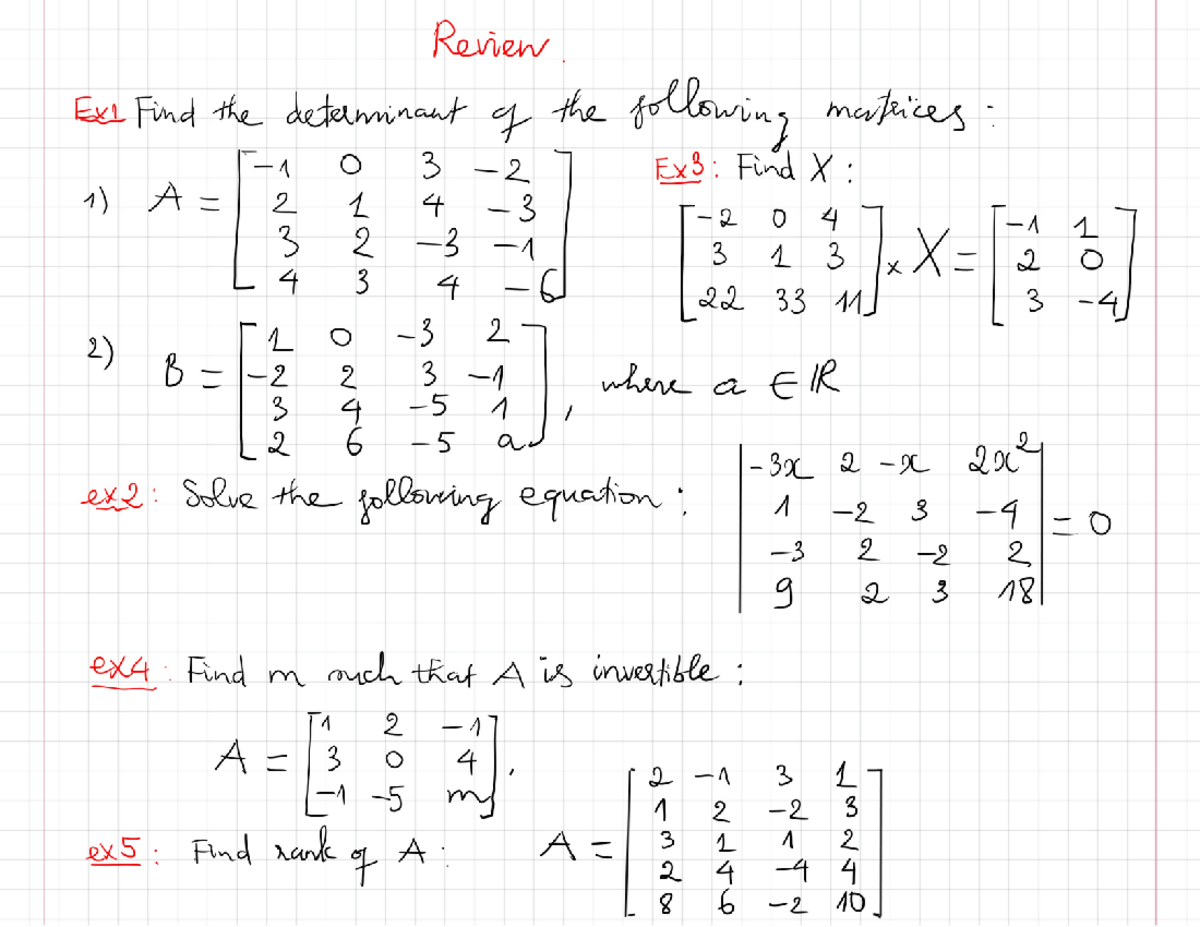 Review.
Ex1 Find the determinant of the following matrices:
1) A = [-1 0 3 -2
2 1 4 -3
3 2 -3 -1
4 3 4 -6]
Ex3: Find X:
[-2 0 4
3 1 3
22 33 11] x X = [-1 1
2 0
3 -4]
2) B = [1 0 -3 2
-2 2 3 -1
3 4 -5 1
2 6 -5 a], where a ∈ ℝ
ex2: Solve the following equation:
|-3x 2 -x 2x²
1 -2 3 -4
-3 2 -2 2
9 2 3 18| = 0
ex4: Find m such that A is invertible:
A = [1 2 -1
3 0 4
-1 -5 m].
ex5: Find rank of A:
A = [2 -1 3 1
1 2 -2 3
3 1 1 2
2 4 -4 4
8 6 -2 10]